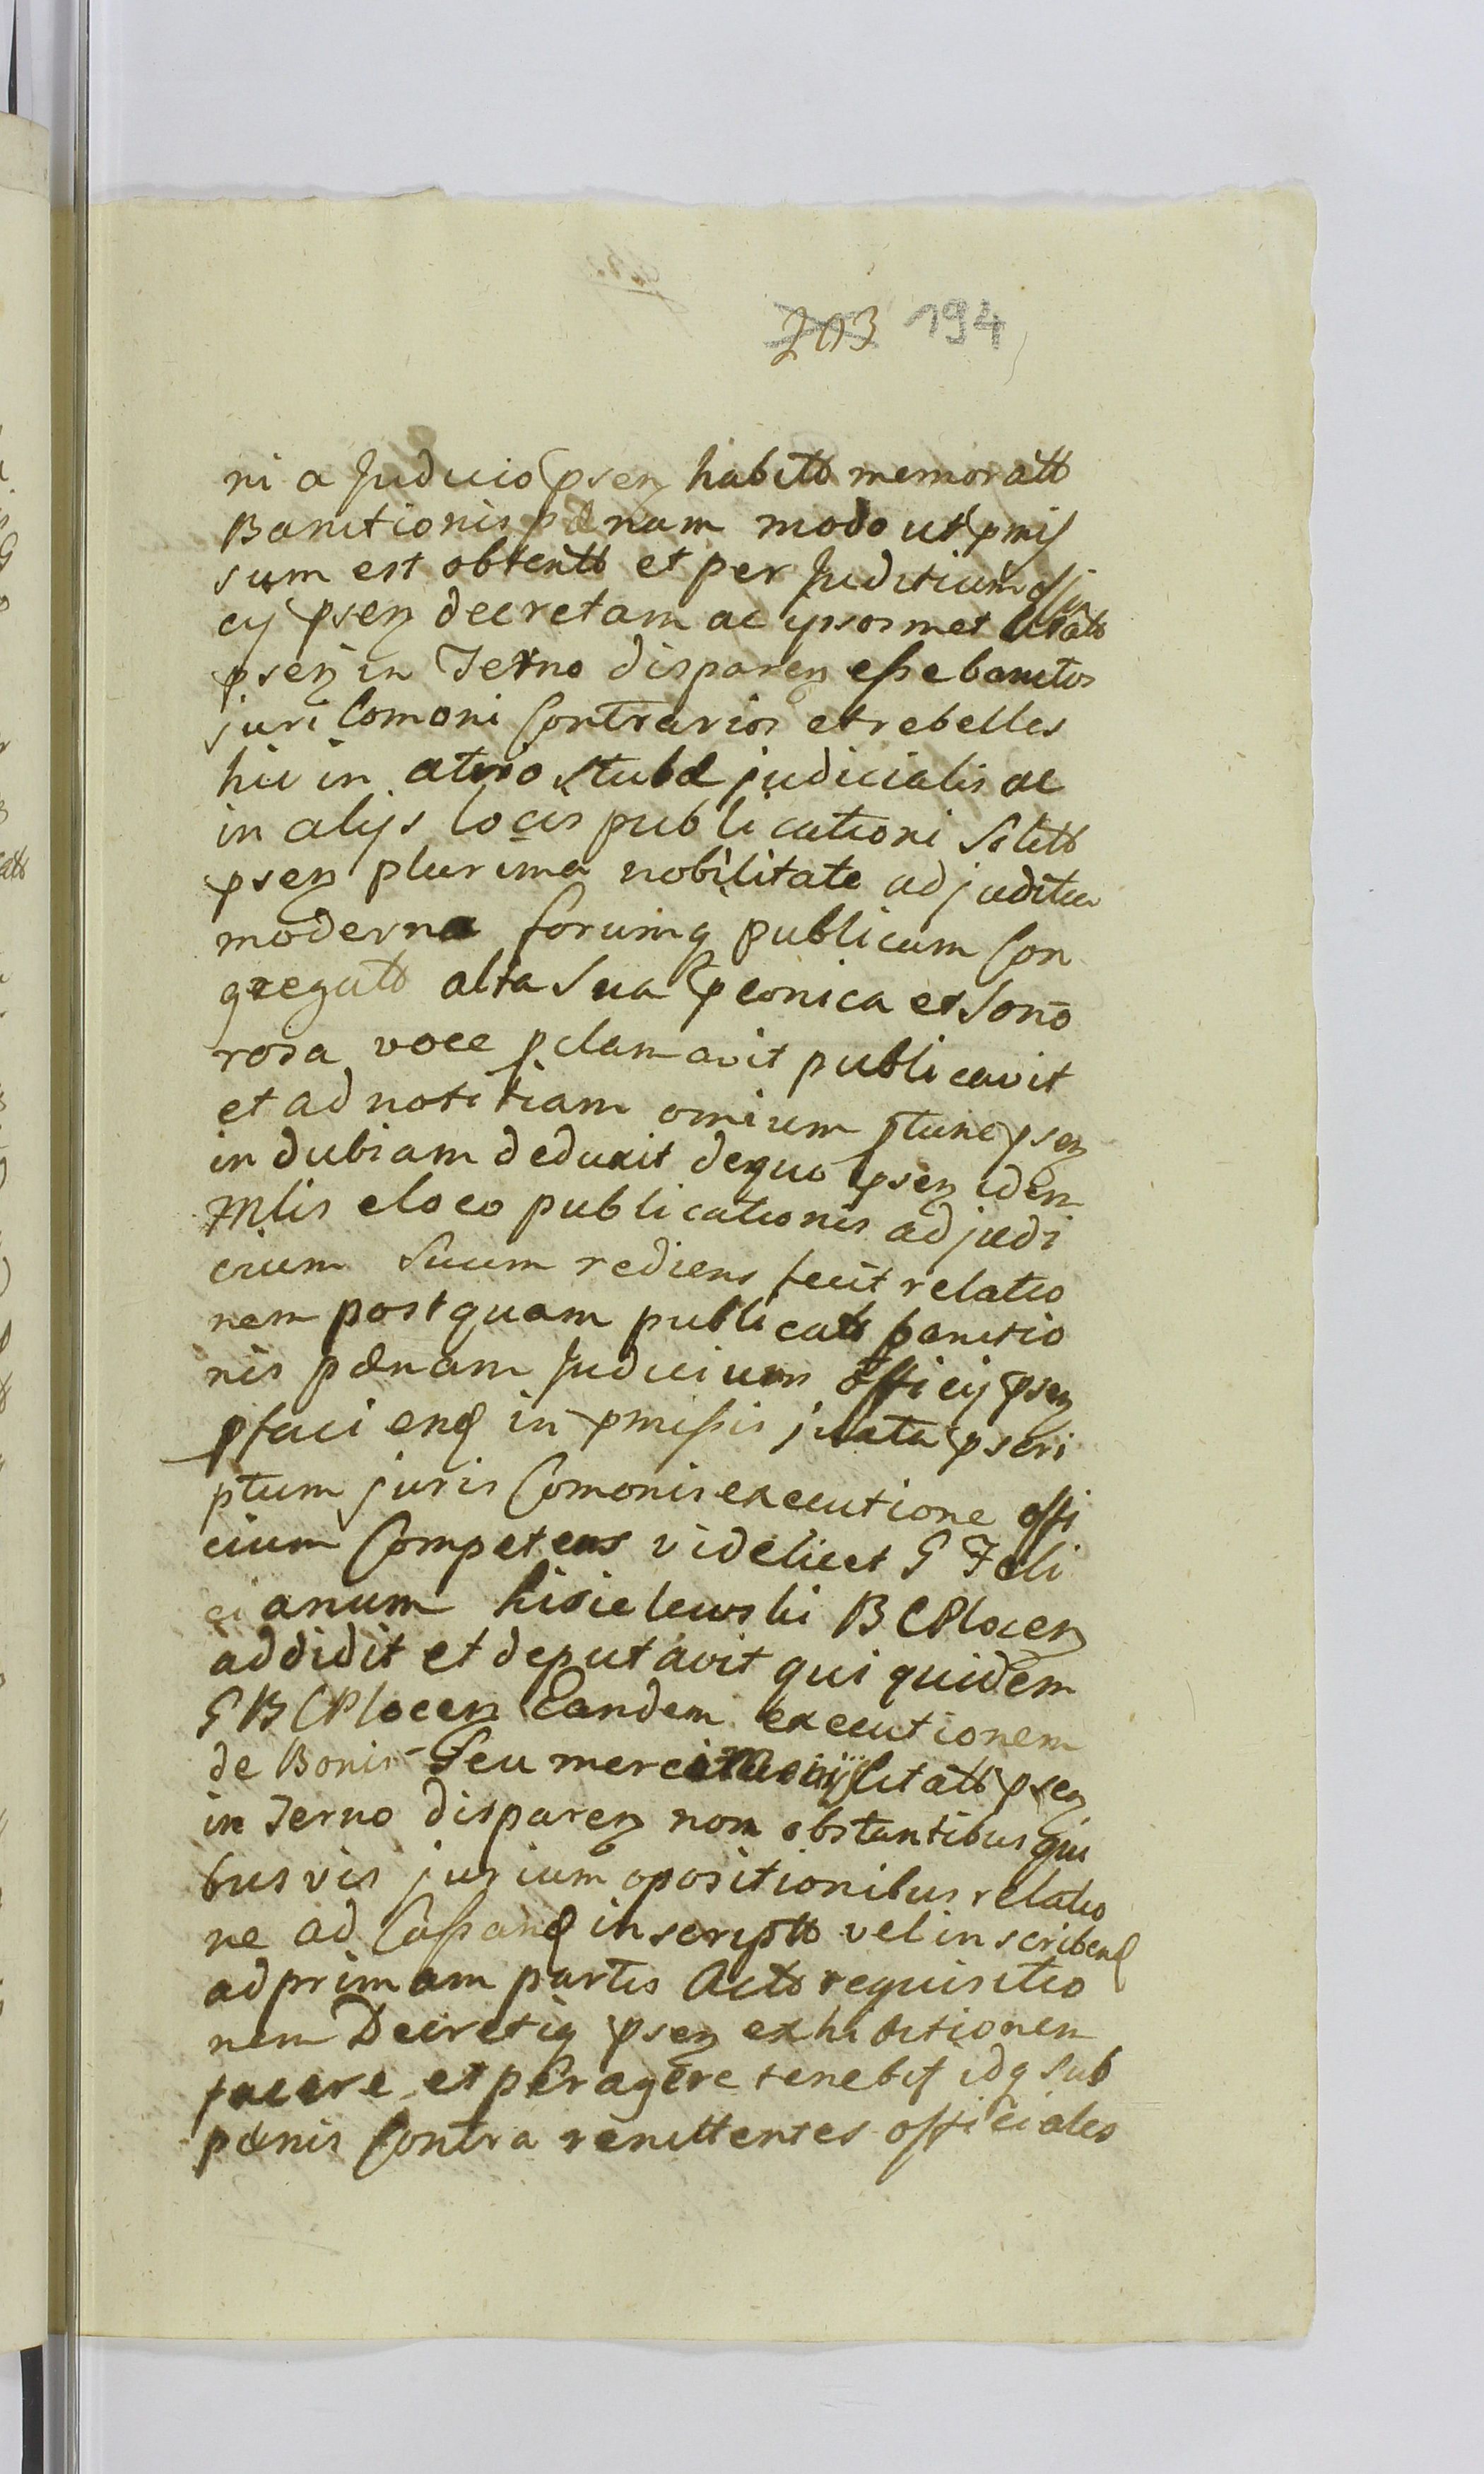 203 194
ni a Judicio psen habitt memoratt
Banitionis pænam modo ut pmis
sum est obtentt et per Juditium offi
cy psen decretam ac ipsosmet citatt
psen in Terno disparen esse banitos
juri Comoni Contrarios et rebelles
hic in atrio stubæ judicialis ac
in alijs locis publicationi solitt
psen plurima nobilitate ad juditia
moderna forumq publicum Con
gregatt alta sua pconica et sono
rosa voce pclamavit publicavit
et ad notitiam omium ptunc psen
indubiam deduxit de quo psen idem
Mlis e loco publicationis ad judi
cium suum rediens fecit relatio
nem post quam publicatt banitio
nis pænam Judicium officy psen
p faciend in pmissis juxta pscri
ptum juris Comonis executione offi
cium Competens videlicet G Feli
cianum Kisielewski B C Plocen
addidit et deputavit qui quidem
G B C Plocen Eandem executionem
de Bonis seu citatt psen
in Terno disparen non obstantibus qui
busvis jurium opositionibus relatio
ne ad Cassand inscriptt vel inscribend
ad primam partis Actt requisitio
nem Decretiq psen exhibitionem
facere et peragere tenebit idq sub
pænis Contra renittentes officiales